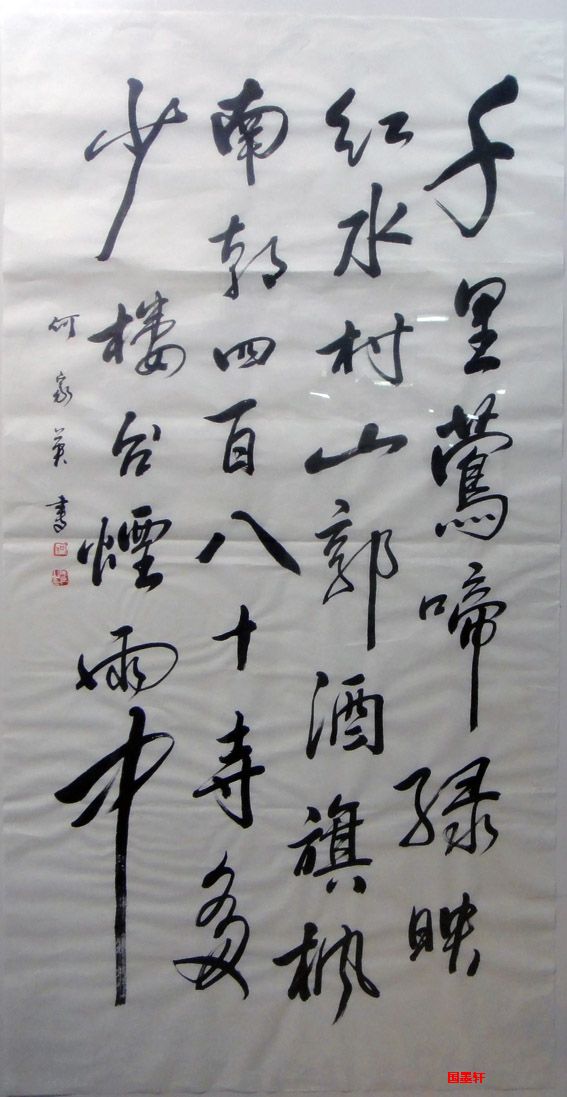 千里莺啼绿映
红水村山郭酒旗枫
南朝四百八十寺多
少楼台煙雨中
何家英书
国墨轩